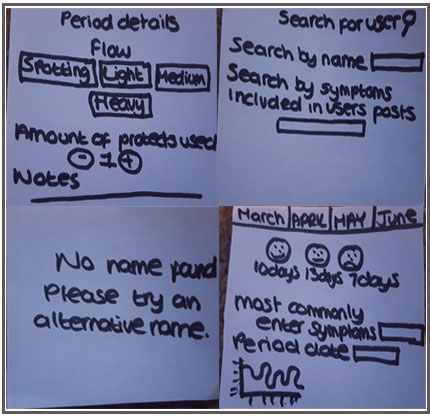 Period details
Flow
Spotting Light Medium
Heavy
Amount of protects used
- 1 +
Notes
Search for user
Search by name
Search by symptoms
included in users posts
No name found
Please try an
alternative name.
March APRIL MAY June
10days 13days 7days
most commonly
enter symptoms
Period date